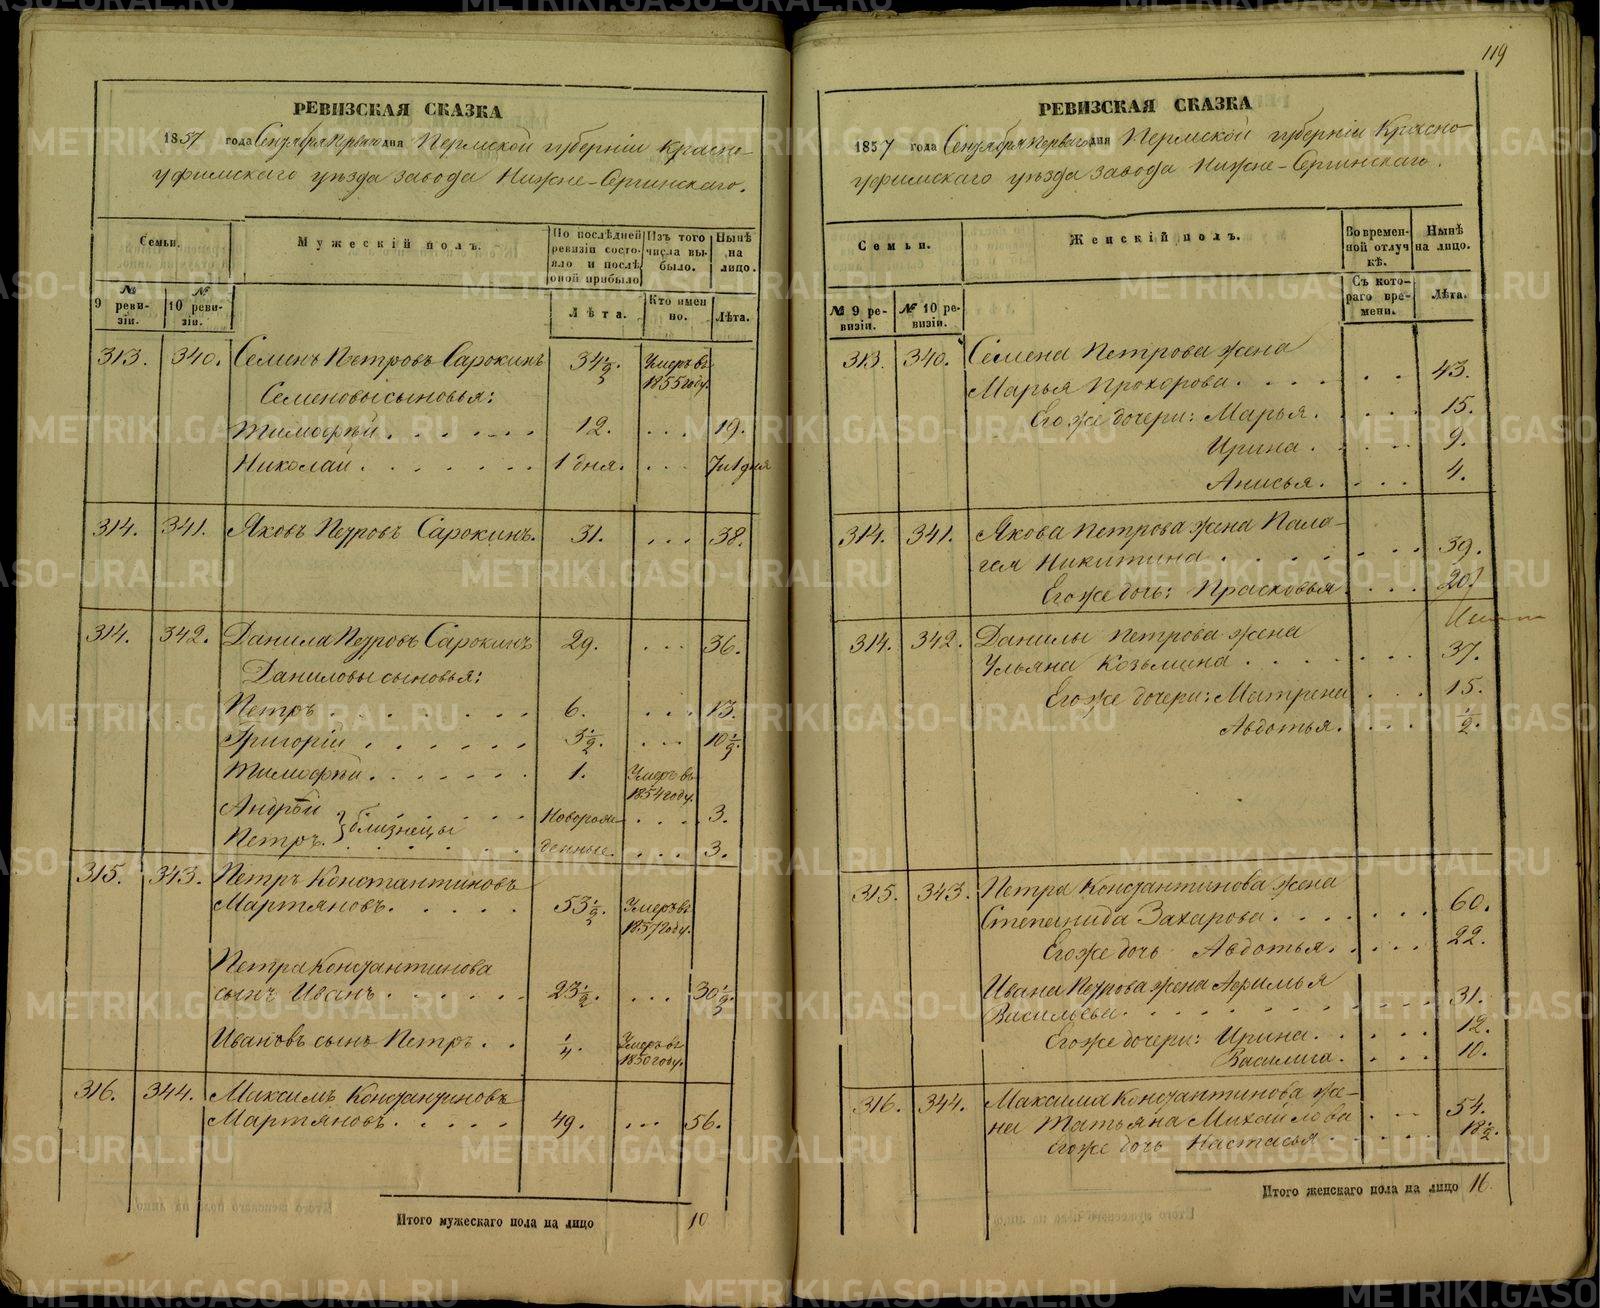 119
РЕВИЗСКАЯ СКАЗКА
1857 года Сентября Перваго дня Пермской губерніи Красно-
уфимскаго уѣзда завода Нижне-Сергинскаго.
Семьи.
Мужескій полъ.
По послѣдней ревизіи состояло и послѣ оной прибыло
Изъ того числа выбыло.
Нынѣ на лицо.
№ 9 ревизіи.
№ 10 ревизіи.
Лѣта.
Кто именно.
Лѣта.
313. 340. Семенъ Петровъ Сарокинъ 34½. Умеръ въ 1855 году.
Семеновы сыновья:
Тимофѣй . . . . . . 12. . . . 19.
Николай . . . . . . . 1 дня. . . . 7 и 1 дня
314. 341. Яковъ Петровъ Сарокинъ. 31. . . . 38.
314. 342. Данила Петровъ Сарокинъ 29. . . . 36.
Даниловы сыновья:
Петръ . . . . . . . . 6. . . . 13.
Григорій . . . . . . 3½. . . . 10½.
Тимофѣй . . . . . . . 1. Умеръ въ 1854 году.
Андрѣй } близнецы . . . Новорож- . . . . 3.
Петръ. . . . . . . денные. . . . 3.
315. 343. Петръ Константиновъ
Мартяновъ. . . . . 53½. Умеръ въ 1857 году.
Петра Константинова
сынъ Иванъ . . . . . . 23½. . . . 30½.
Ивановъ сынъ Петръ. . . ¼. Умеръ въ 1850 году.
316. 344. Максимъ Константиновъ
Мартяновъ. . . . . 49. . . . 56.
Итого мужескаго пола на лицо 10
РЕВИЗСКАЯ СКАЗКА
1857 года Сентября Перваго дня Пермской губерніи Красно-
уфимскаго уѣзда завода Нижне-Сергинскаго.
Семьи.
Женскій полъ.
Во временной отлучкѣ.
Нынѣ на лицо.
№ 9 ревизіи.
№ 10 ревизіи.
Съ котораго времени.
Лѣта.
313. 340. Семена Петрова жена
Марья Прохорова . . . . . . 43.
Его же дочери: Марья. . . . . 15.
Ирина . . . . . 9.
Анисья. . . . . 4.
314. 341. Якова Петрова жена Пала-
гея Никитина . . . . . . . . 39.
Его же дочь: Прасковья . . . . 20.
314. 342. Данилы Петрова жена
Ульяна Козьмина . . . . . . . 37.
Его же дочери: Матрена . . . 15.
Авдотья. . . . . ½.
315. 343. Петра Константинова жена
Степанида Захарова. . . . . . . 60.
Его же дочь Авдотья. . . . . 22.
Ивана Петрова жена Афимья
Васильева. . . . . . . . 31.
Его же дочери: Ирина. . . . . 12.
Василиса. . . . . 10.
316. 344. Максима Константинова же-
на Татьяна Михайлова . . . 54.
Его же дочь Настасья . . . . . 18½.
Итого женскаго пола на лицо 16.
METRIKI.GASO-URAL.RU